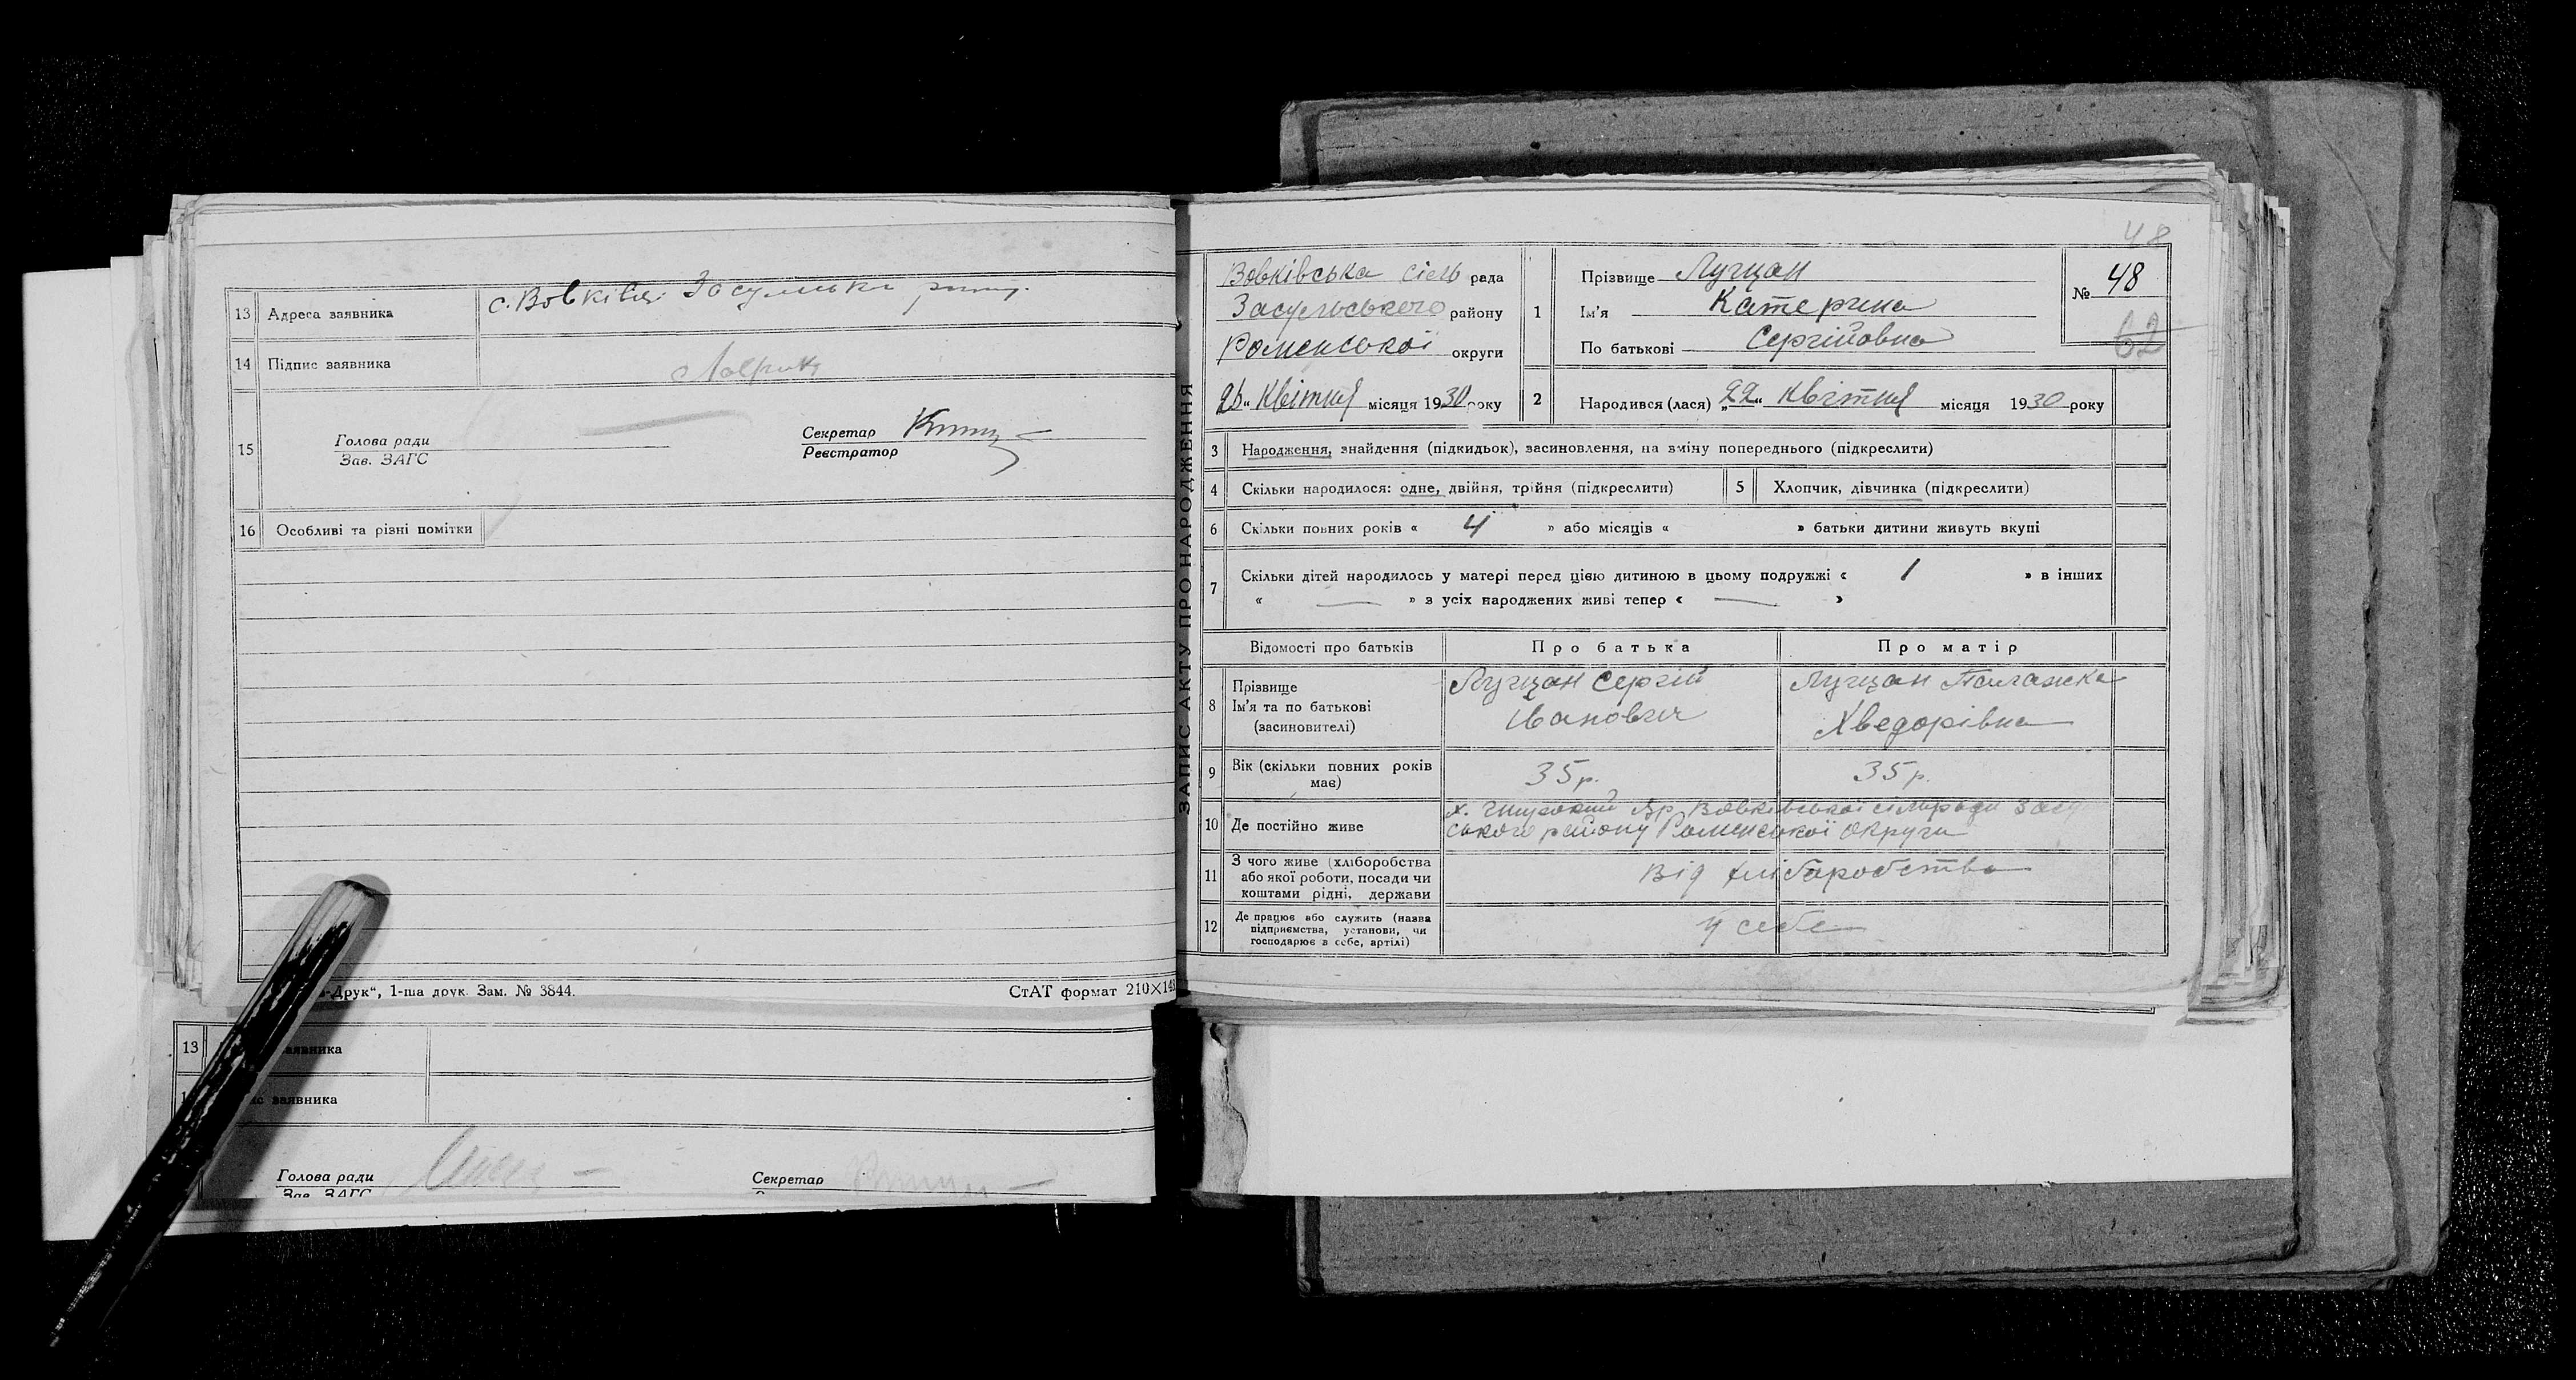 13 Адреса заявника с. Вовківці
14 Підпис заявника
15 Голова ради
Зав. ЗАГС
Секретар
Реєстратор
16 Особливі та різні помітки
-Друк“, 1-ша друк. Зам. № 3844.
СтАТ формат 210×14
13 аявника
заявника
Голова ради
Зав. ЗАГС
Секретар
ЗАПИС АКТУ ПРО НАРОДЖЕННЯ
48
Вовківська сіль рада
Засульського району
Роменської округи
Квітня місяця 1930 року
1 Прізвище Лущан
Ім'я Катерина
По батькові Сергійовна
№ 48
62
2 Народився (лася) „22“ Квітня місяця 1930 року
3 Народження, знайдення (підкидьок), засиновлення, на зміну попереднього (підкреслити)
4 Скільки народилося: одне, двійня, трійня (підкреслити) 5 Хлопчик, дівчинка (підкреслити)
6 Скільки повних років « 4 » або місяців « » батьки дитини живуть вкупі
7 Скільки дітей народилось у матері перед цією дитиною в цьому подружжі « 1 » в інших
« — » з усіх народжених живі тепер « — »
Відомості про батьків Про батька Про матір
8 Прізвище
Ім'я та по батькові
(засиновителі)
Лущан Сергій
Іванович
Лущан Палажка
Хведорівна
9 Вік (скільки повних років
має)
35 р. 35 р.
10 Де постійно живе
х. Яр Вовківської сільради
ського району Роменської округи
11 З чого живе (хліборобства
або якої роботи, посади чи
коштами рідні, держави
Від хліборобства
12 Де працює або служить (назва
підприємства, установи, чи
господарює в себе, артілі)
У себе